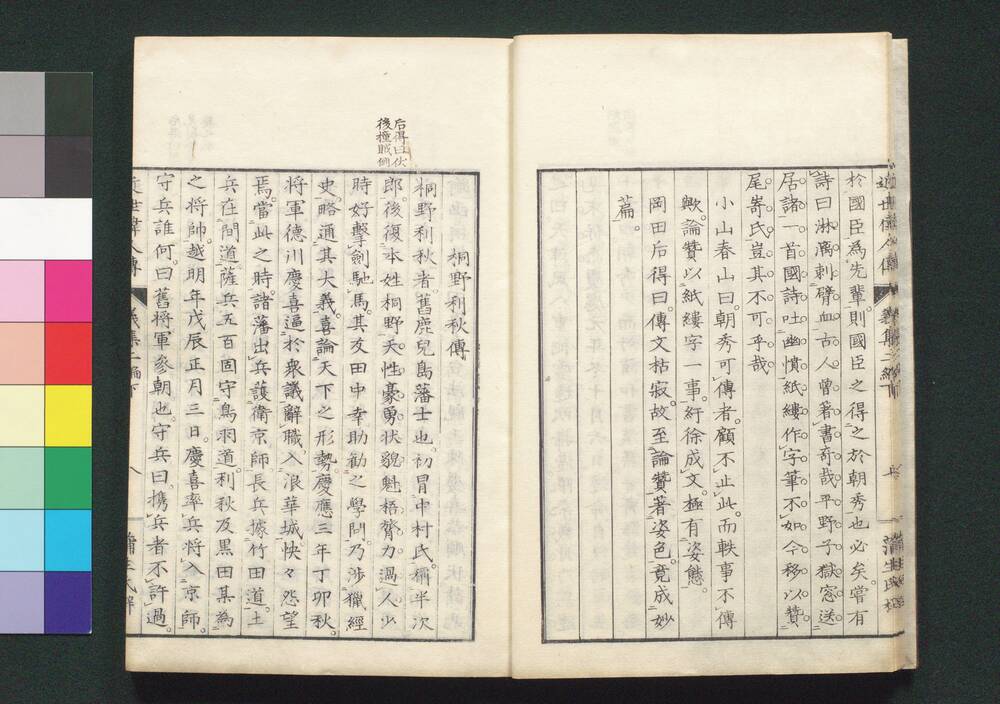 於國臣爲先輩則國臣之得之於朝秀也必矣嘗有
詩曰淋漓刺臂血古人曾著書奇哉平野子獄窓送
居諸一首國詩吐幽憤紙縷作字筆不如今移以贊
尾寄氏豈其不可乎哉
小山春山曰朝秀可傳者顧不止此而軼事不傳
歟論贊以紙縷字一事紆徐成文極有姿態
岡田后得曰傳文枯寂故至論贊著姿色竟成妙
篇
后得曰伏
後撞賊例
桐野利秋傳
桐野利秋者舊鹿兒島藩士也初冒中村氏稱半次
郎後復本姓桐野天性豪勇状貌魁梧膂力過人少
時好擊劍馳馬其友田中幸助勸之學問乃涉獵經
史略通其大義喜論天下之形勢慶應三年丁卯秋
將軍德川慶喜逼於衆議辭職入浪華城怏々怨望
焉當此之時諸藩出兵護衛京師長兵據竹田道土
兵在間道薩兵五百固守鳥羽道利秋及黒田某為
之將帥越明年戊辰正月三日慶喜率兵將入京師
守兵誰何曰舊將軍參朝也守兵曰携兵者不許過
近世偉人傳 義集二編下 八